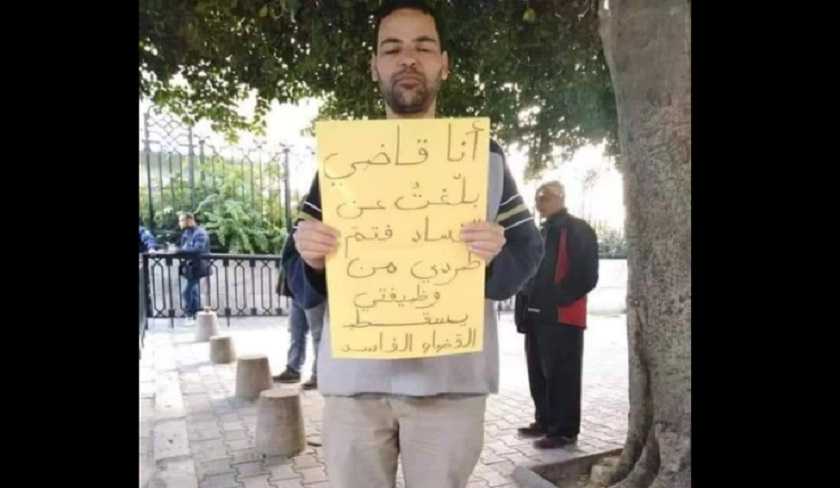 أنا قاضي
بلّغتُ عن
فساد فتمّ
طردي من
وظيفتي
يسقط
القضاء الفاسد